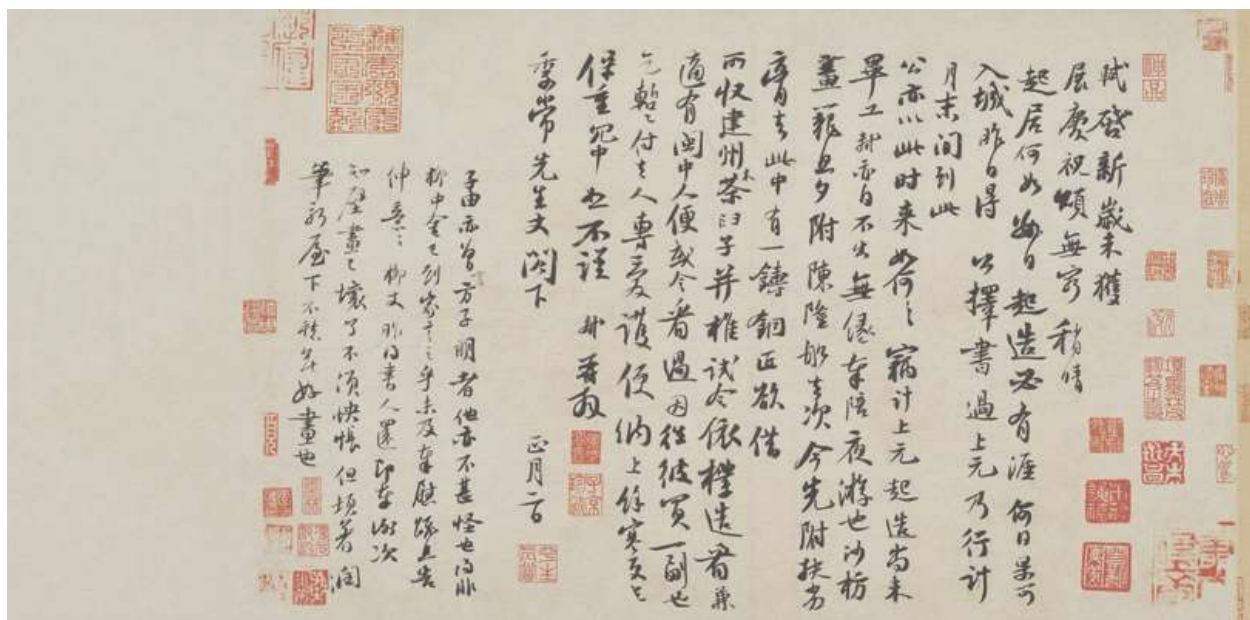 軾啓新歲未獲
展慶祝頌無窮稍晴
起居何如數日起造必有涯何日果可
入城昨日得公擇書過上元乃行計
月末間到此
公亦以此時来如何ミ竊計上元起造尚未
畢工軾亦自不出無縁奉陪夜游也沙枋
畫籠旦夕附陳隆舩去次今先附扶劣
膏去此中有一鑄銅匠欲借
所收建州木茶臼子并椎試令依樣造看兼
適有閩中人便或令看過因往彼買一副也
乞蹔ミ付去人專愛護便納上餘寒更乞
保重冗中恕不謹軾再拜
季常先生丈閤下
正月二日
子由亦曾言方子明者他亦不甚怪也得非
柳中舍已到家言之乎未及奉慰疏且告
伸意ミ柳丈昨得書人還即奉謝次
知壁畫已壞了不須怏悵但頓著潤
筆新屋下不愁無好畫也